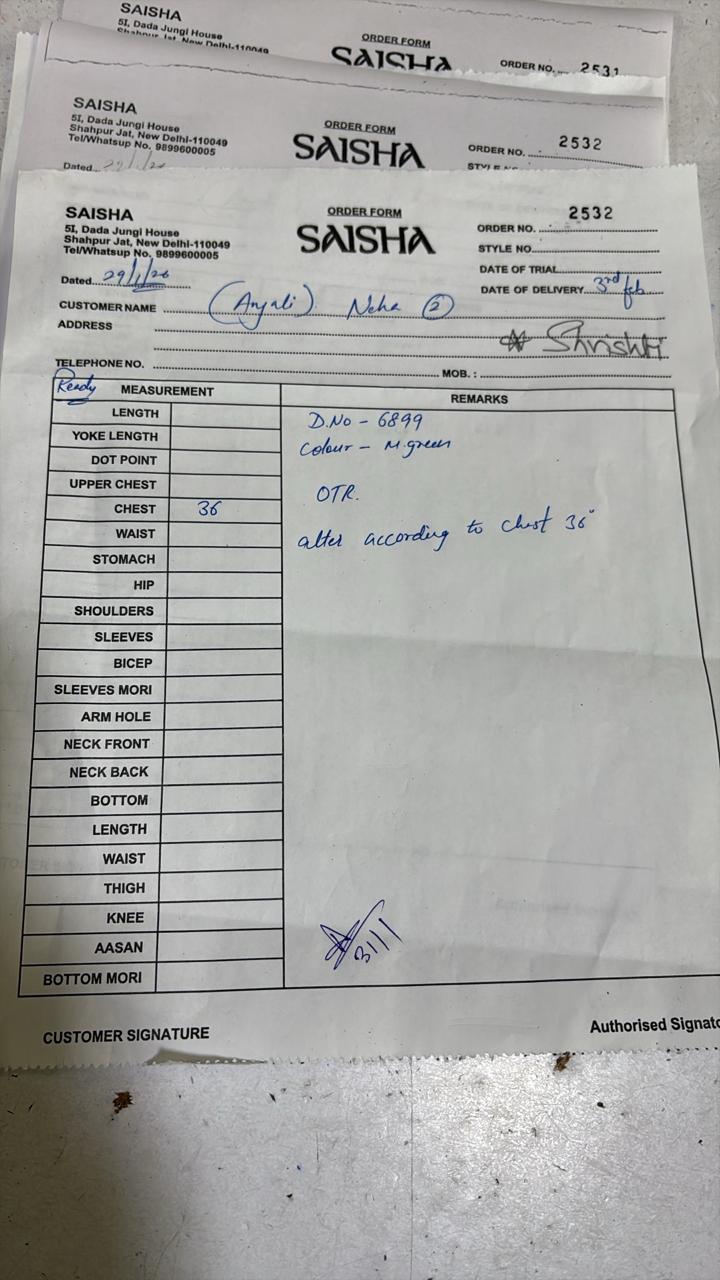 SAISHA
5I, Dada Jungi House
Shahpur Jat, New Delhi-110049
ORDER FORM
SAISHA
ORDER NO. 2531
SAISHA
5I, Dada Jungi House
Shahpur Jat, New Delhi-110049
Tel/Whatsup No. 9899600005
Dated
ORDER FORM
SAISHA
ORDER NO. 2532
STYLE NO.
SAISHA
5I, Dada Jungi House
Shahpur Jat, New Delhi-110049
Tel/Whatsup No. 9899600005
ORDER FORM
SAISHA
ORDER NO. 2532
STYLE NO.
DATE OF TRIAL
DATE OF DELIVERY 3rd feb
Dated 29/1/26
CUSTOMER NAME (Anjali) Neha 2
ADDRESS
Shrishti
TELEPHONE NO. MOB. :
Ready MEASUREMENT REMARKS
LENGTH D.No - 6899
YOKE LENGTH Colour - M.green
DOT POINT
UPPER CHEST OTR.
CHEST 36
WAIST alter according to chest 36"
STOMACH
HIP
SHOULDERS
SLEEVES
BICEP
SLEEVES MORI
ARM HOLE
NECK FRONT
NECK BACK
BOTTOM
LENGTH
WAIST
THIGH
KNEE
AASAN 31/1
BOTTOM MORI
CUSTOMER SIGNATURE Authorised Signato